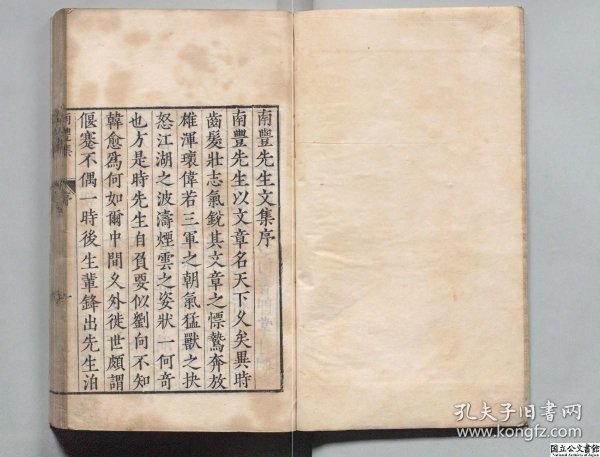 南豐先生文集序
南豐先生以文章名天下乆矣異時
齒髮壯志氣銳其文章之慓鷙奔放
雄渾瓌偉若三軍之朝氣猛獸之抉
怒江湖之波濤煙雲之姿狀一何奇
也方是時先生自負要似劉向不知
韓愈爲何如爾中間乆外徙世頗謂
偃蹇不偶一時後生輩鋒出先生泊
南豐集
序
一
孔夫子旧书网
www.kongfz.com
国立公文書館
National Archives of Japan